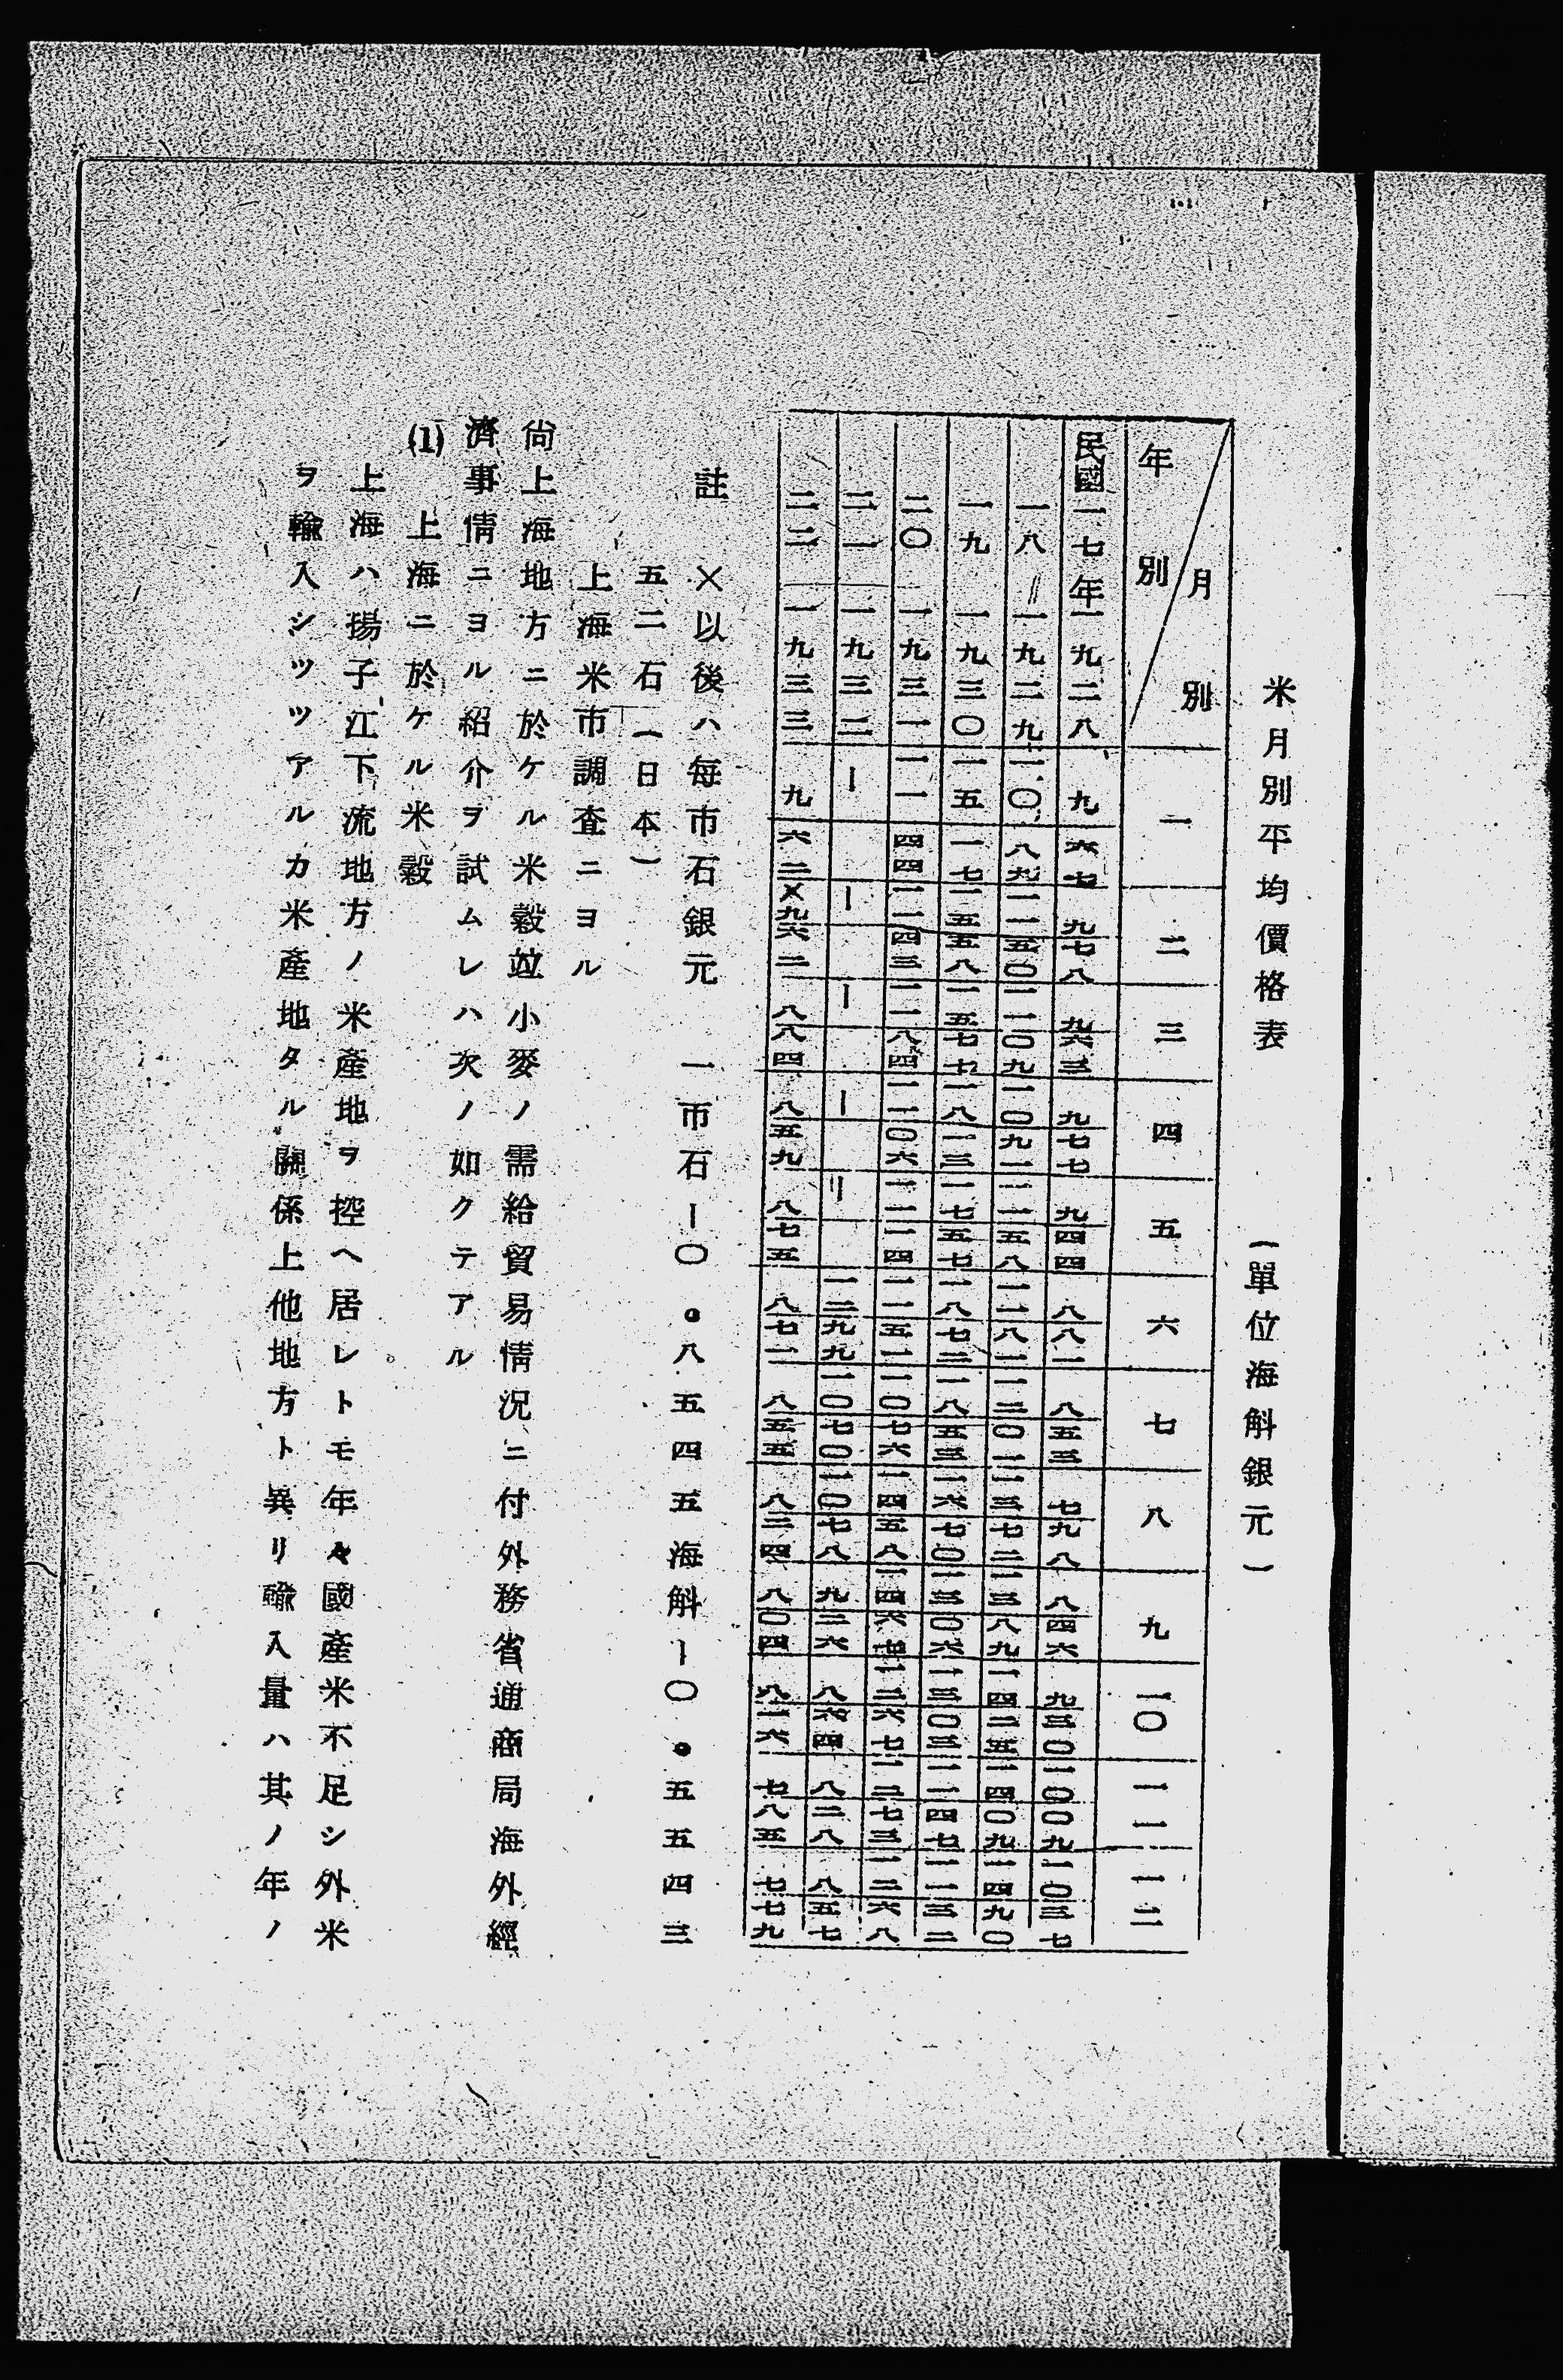 米月別平均價格表 (單位海斛銀元)
年別 月別 一 二 三 四 五 六 七 八 九 一〇 一一 一二
民國一七年 一九二八 九六七 九七八 九六三 九七七 九四四 八八一 八五三 七九八 八四六 九三〇 一〇〇九 一〇三七
一八〃 一九二九 一〇八九 一一五〇 一一〇九 一〇九一 一一五八 一一八一 一二〇一 一三七二 一三八九 一四二五 一四〇九 一四九〇
一九 一九三〇 一五一七 一五五八 一五七七 一八一三 一七五七 一八七二 一八五三 一六七〇 一三〇六 一三〇三 一一四七 一一三二
二〇 一九三一 一一四四 一一四三 一一八四 一一〇六 一二一四 一一五一 一〇七六 一四五八 一四六七 一二六七 一二七三 一二六八
二一 一九三二 ー ー ー ー ー 一二九九 一〇七〇 一〇七八 九二六 八六四 八二八 八五七
二二 一九三三 九六二 ×九六二 八八四 八五九 八七五 八七一 八五五 八二四 八〇四 八一六 七八五 七七九
註 ×以後ハ每市石銀元 一市石ー〇。八五四五海斛ー〇。五五四三
五二石(日本)
上海米市調査ニヨル
尙上海地方ニ於ケル米穀竝小麥ノ需給貿易情況ニ付外務省通商局海外經
濟事情ニヨル紹介ヲ試ムレハ次ノ如クテアル
(1) 上海ニ於ケル米穀
上海ハ揚子江下流地方ノ米產地ヲ控ヘ居レトモ年々國產米不足シ外米
ヲ輸入シツツアルカ米產地タル關係上他地方ト異リ輸入量ハ其ノ年ノ